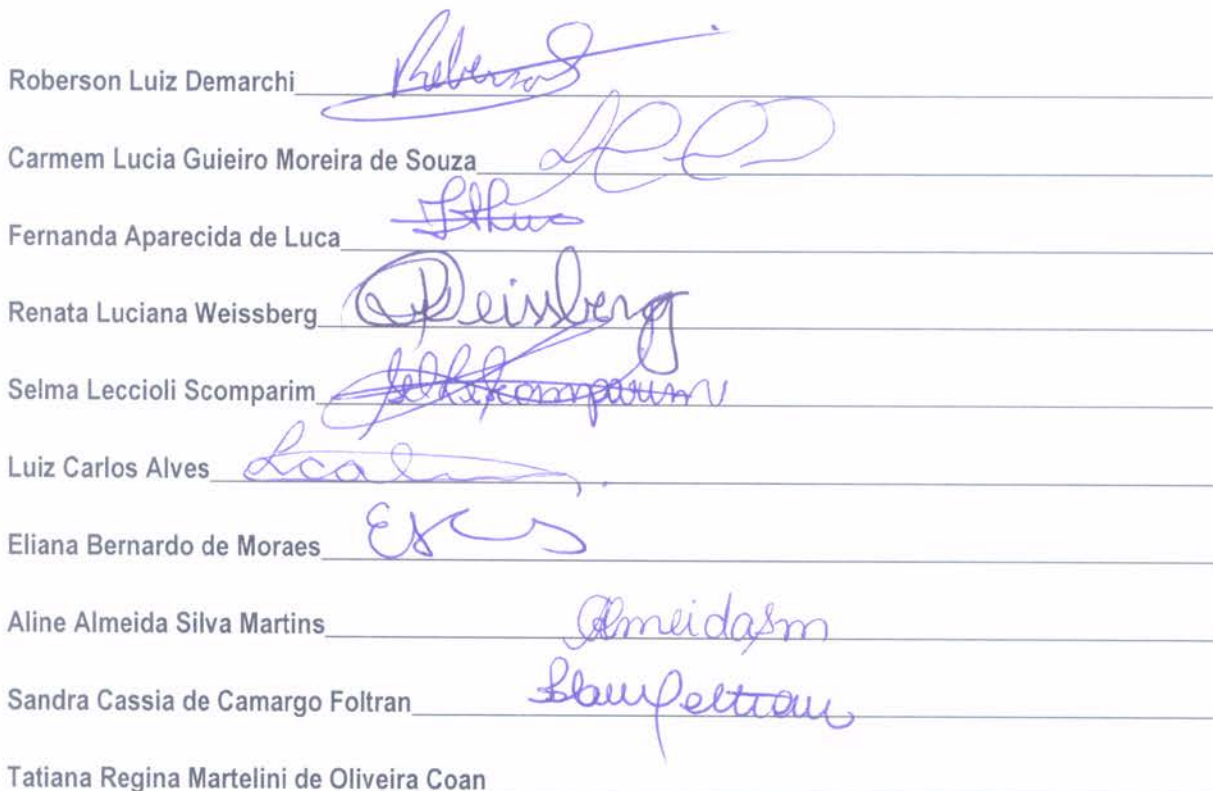 Roberson Luiz Demarchi Roberson
Carmem Lucia Guieiro Moreira de Souza
Fernanda Aparecida de Luca
Renata Luciana Weissberg RWeissberg
Selma Leccioli Scomparim Scomparim
Luiz Carlos Alves
Eliana Bernardo de Moraes
Aline Almeida Silva Martins Almeidasm
Sandra Cassia de Camargo Foltran
Tatiana Regina Martelini de Oliveira Coan